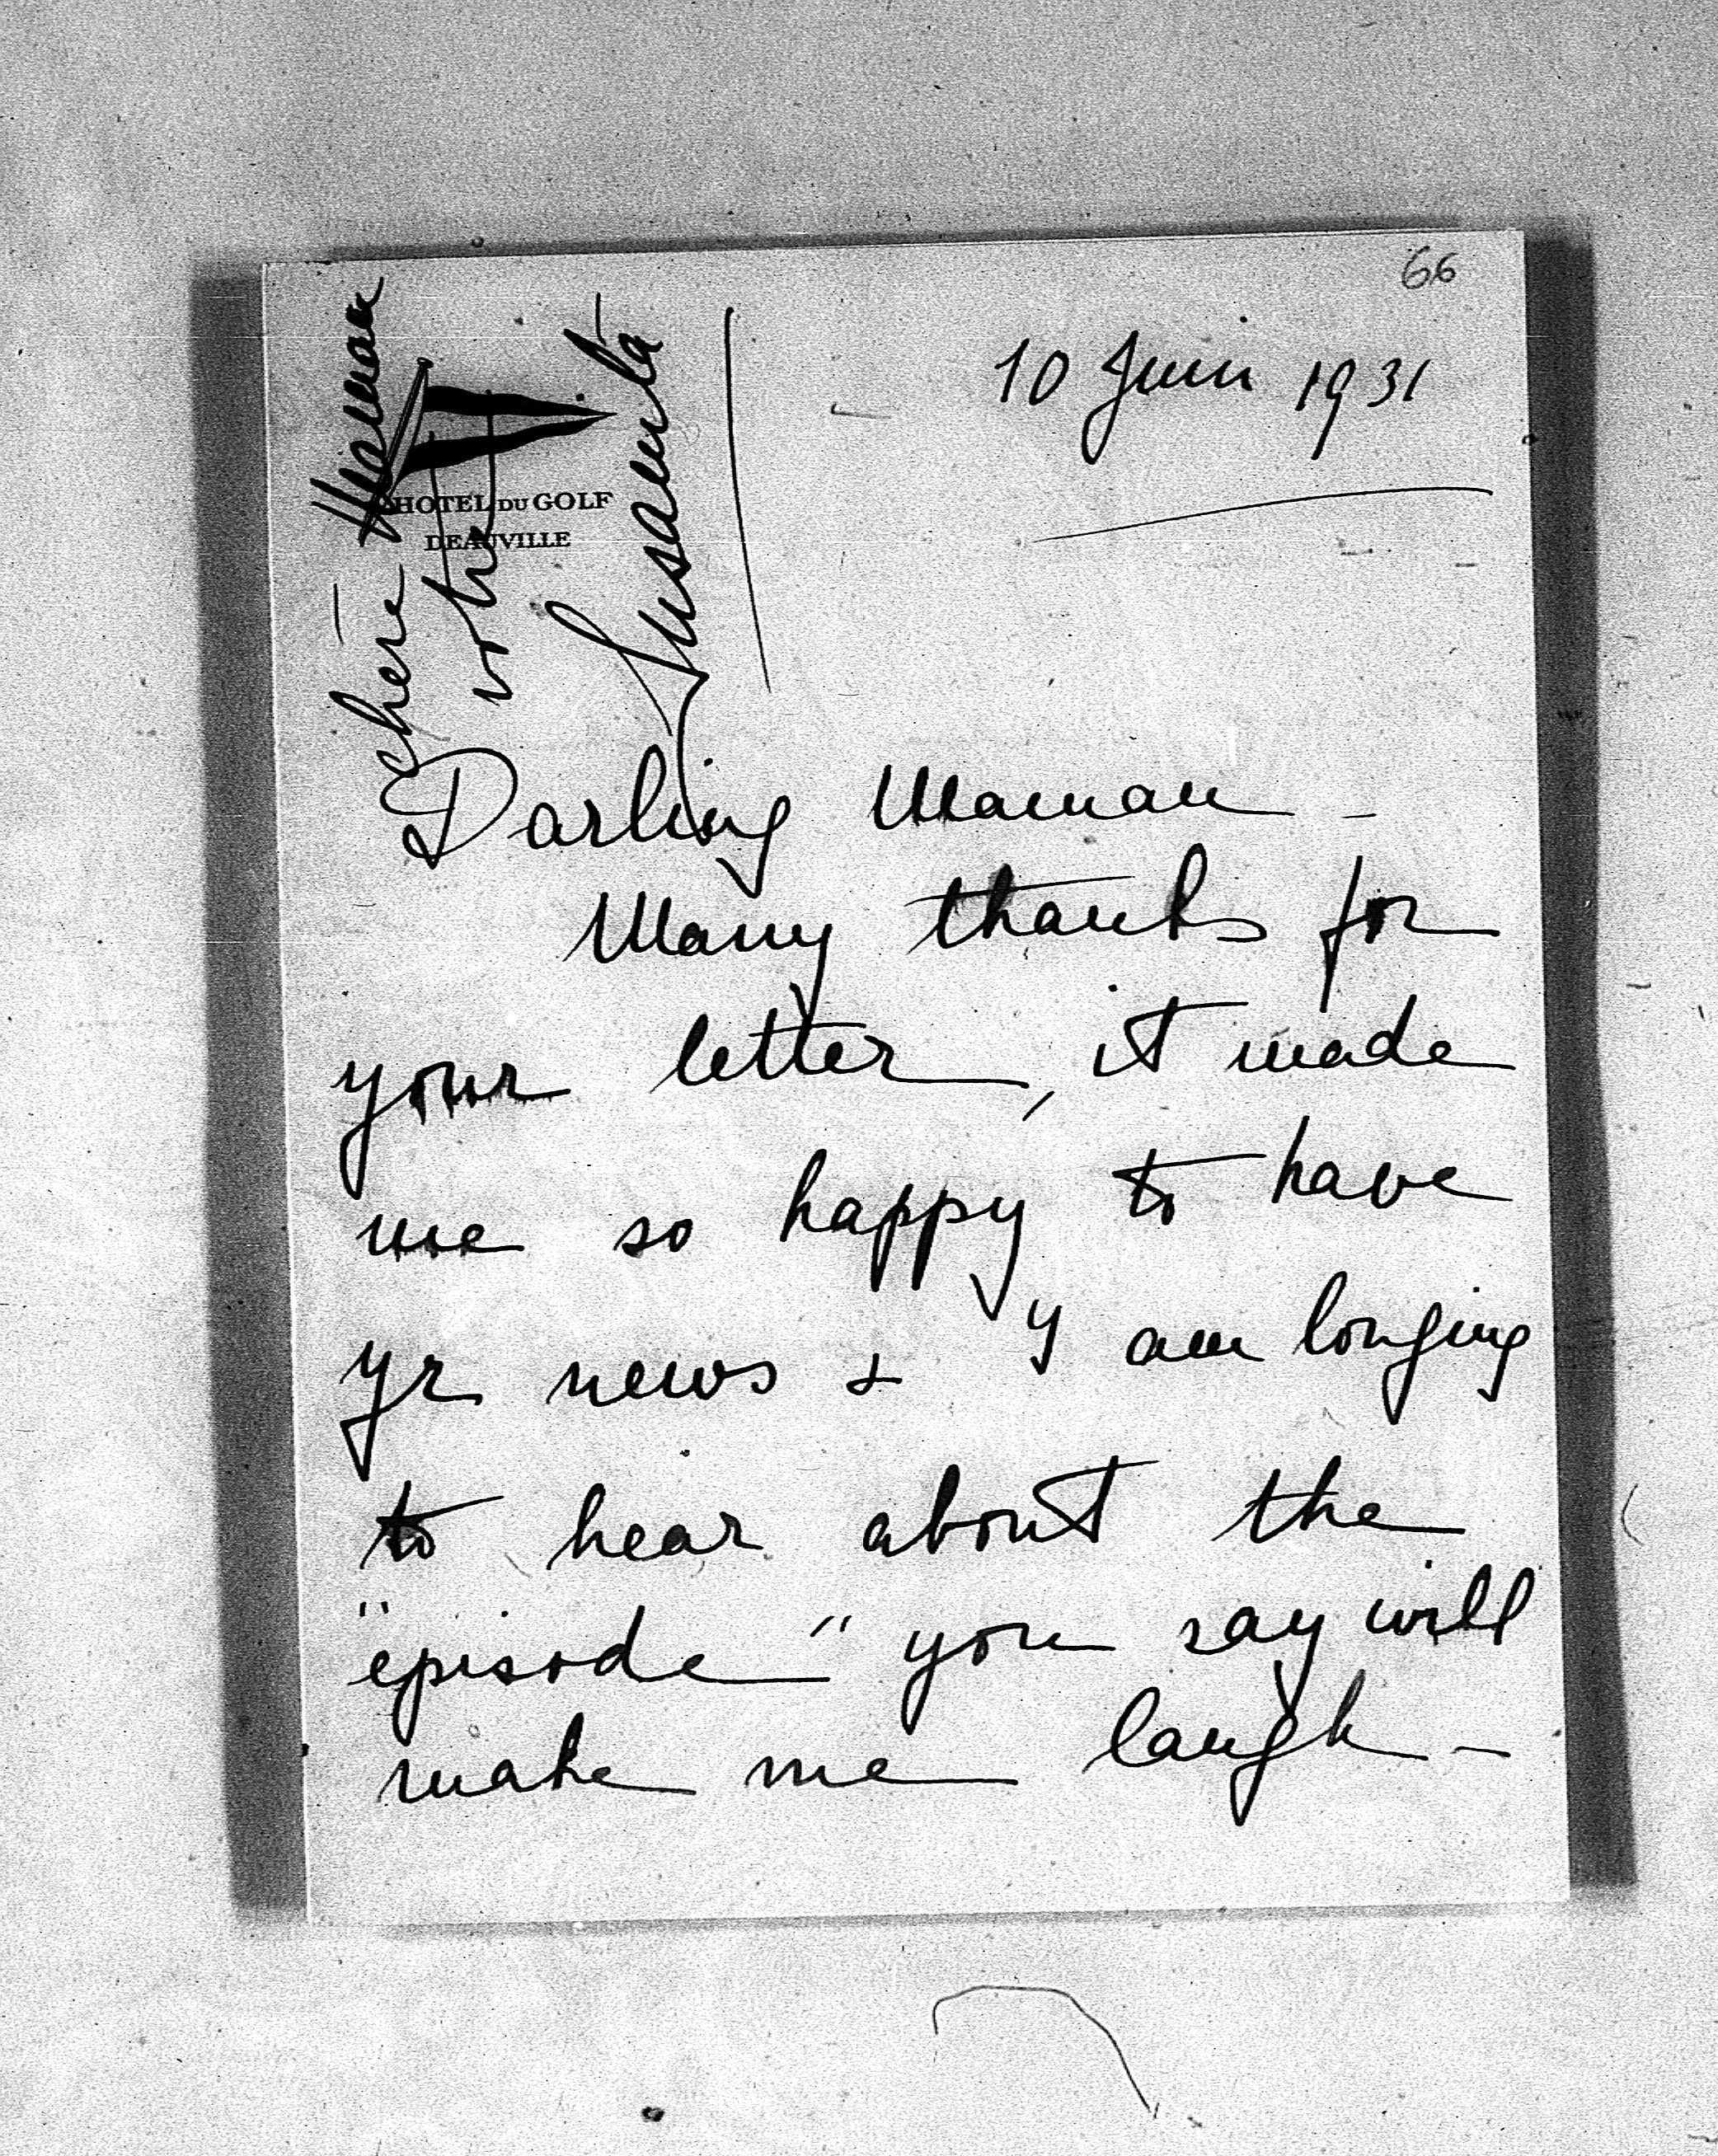 66
10 Juin 1931
HOTEL DU GOLF
DEAUVILLE
chère Maman
votre
Susanita
Darling Maman -
Many thanks for
your letter, it made
me so happy to have
yr news & I am longing
to hear about the
"episode" you say will
make me laugh -